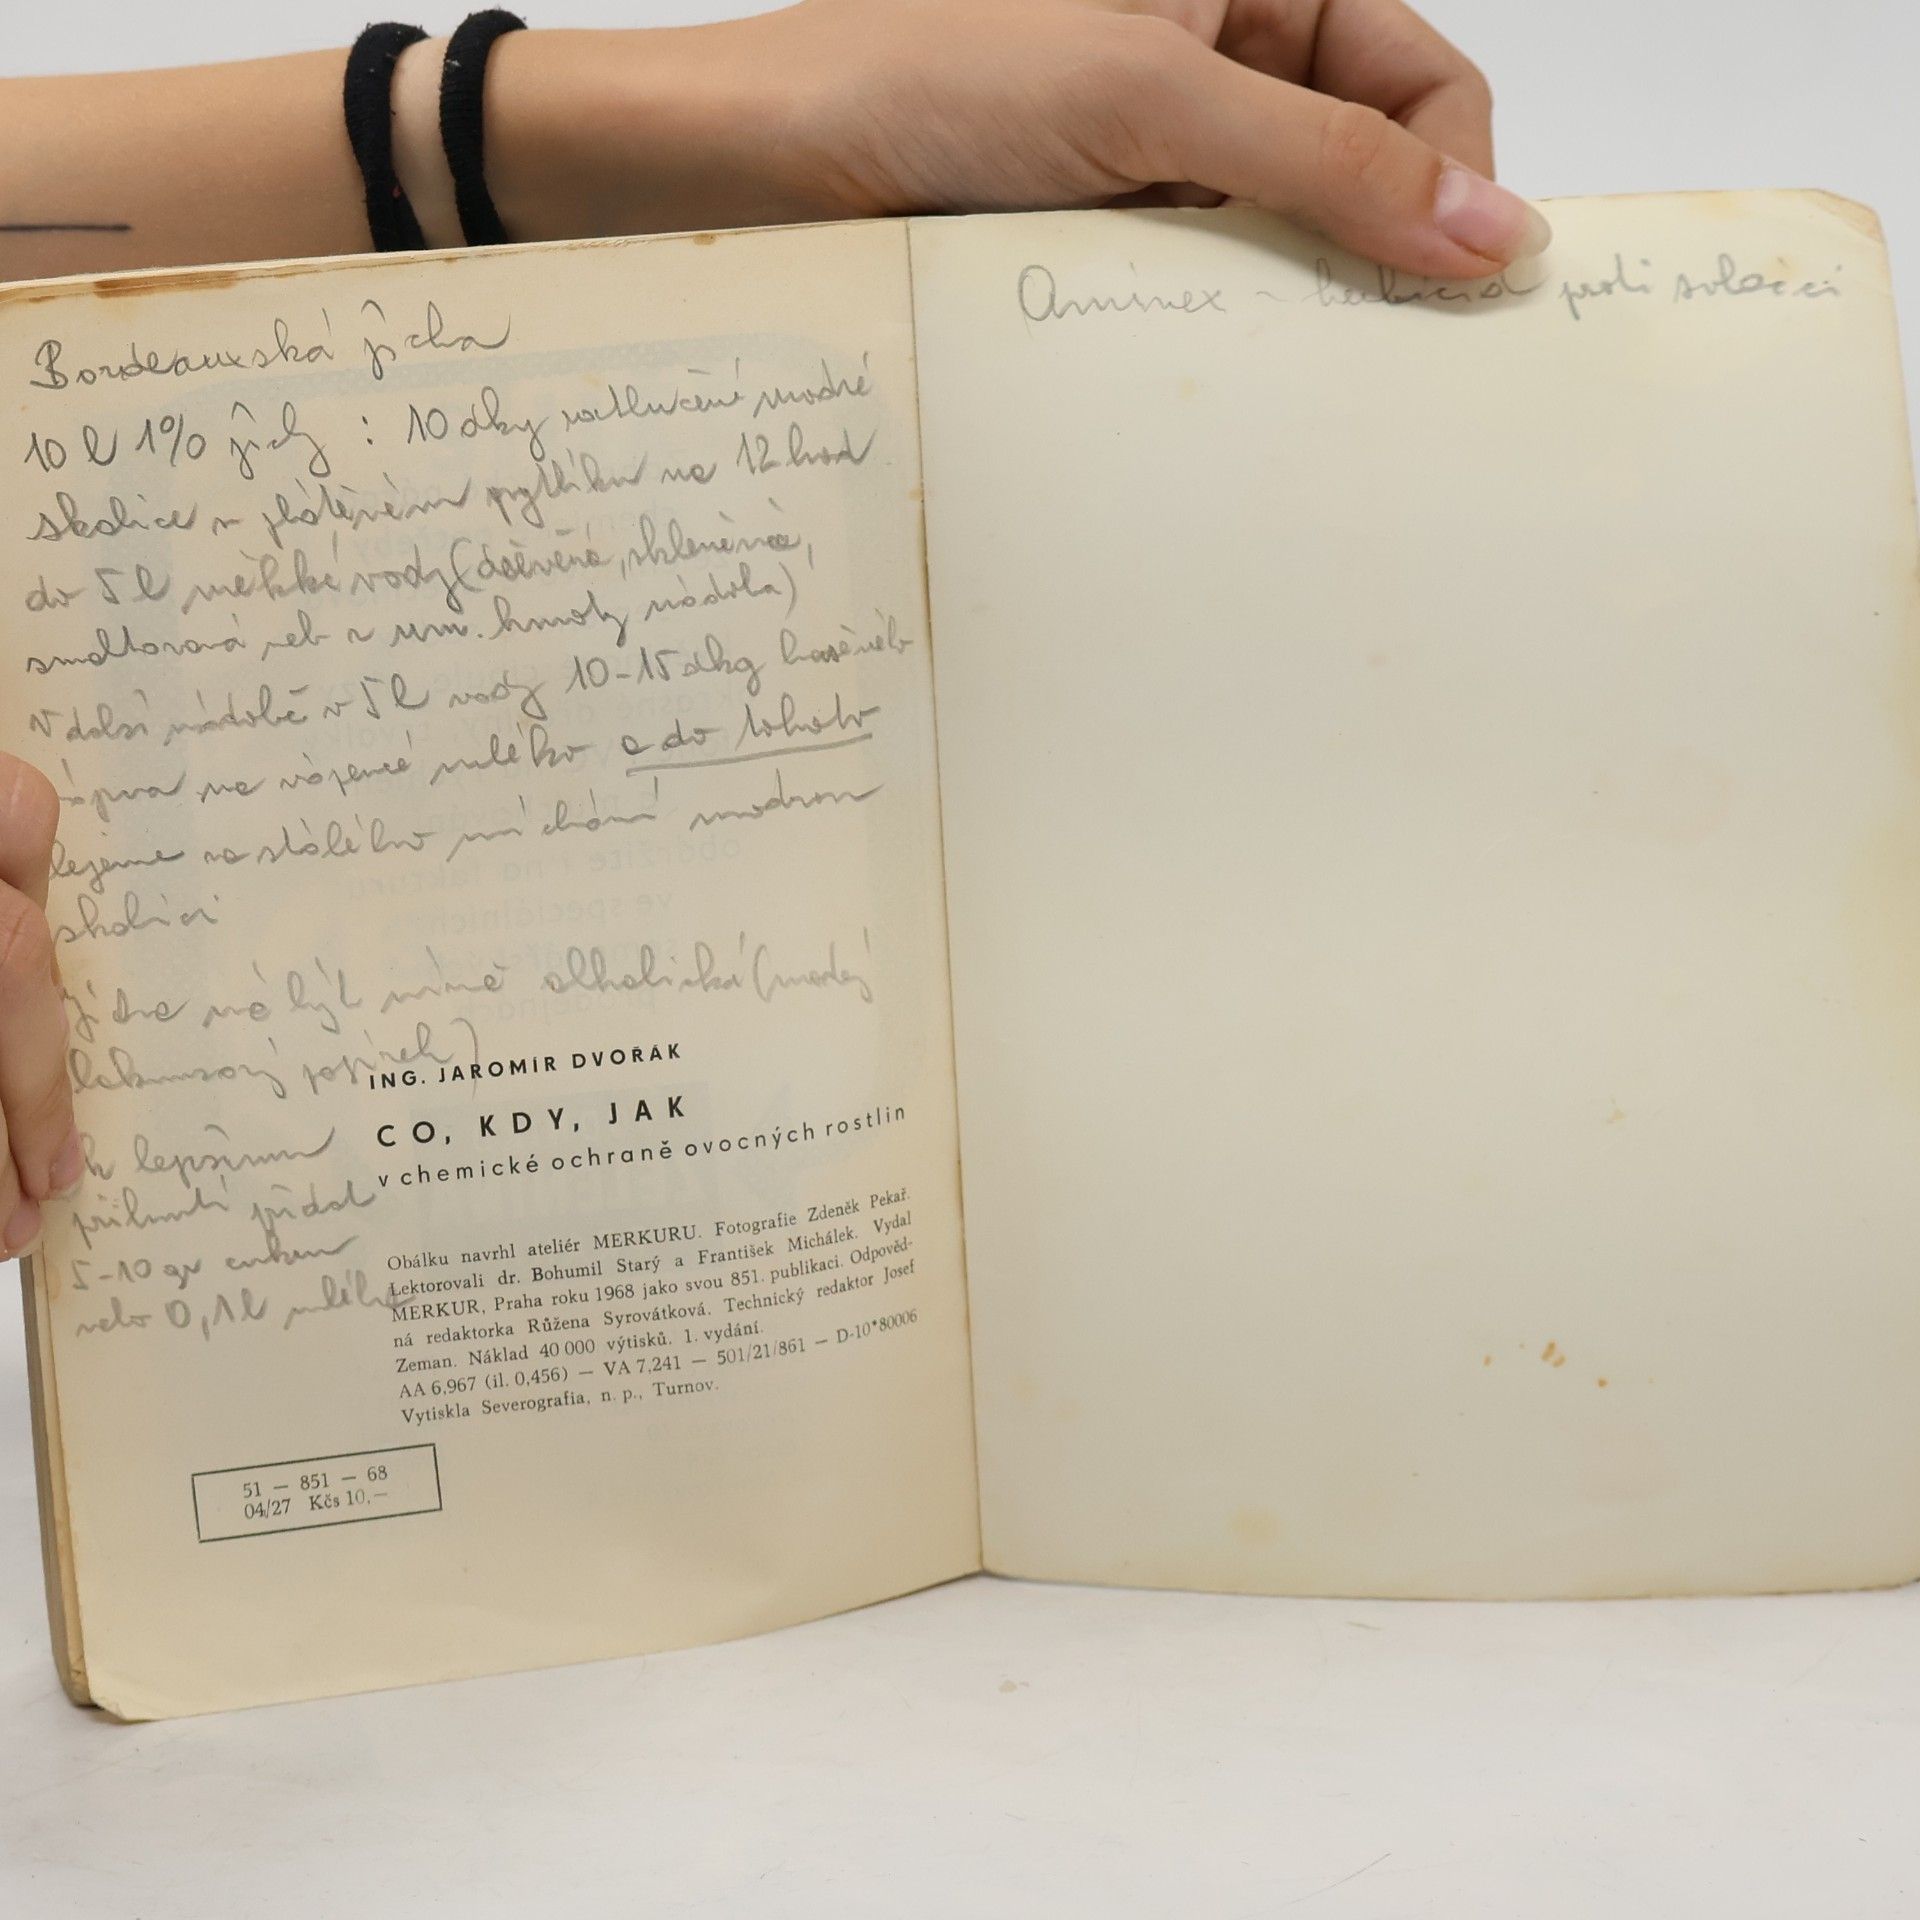 Bordeauxská jícha
10 l 1% jíchy : 10 dkg roztlučené modré
skalice v plátěném pytlíku na 12 hod
do 5 l měkké vody (dřevěná, skleněná,
smaltovaná neb z um. hmoty nádoba)
V další nádobě v 5 l vody 10-15 dkg hašeného
vápna na vápenné mléko a do tohoto
lejeme za stálého míchání modrou
skalici
Jícha má být mírně alkalická (modrý
lakmusový papírek)
k lepšímu
přilnutí přidat
5-10 gr cukru
nebo 0,1 l mléka
ING. JAROMÍR DVOŘÁK
CO, KDY, JAK
v chemické ochraně ovocných rostlin
Obálku navrhl ateliér MERKURU. Fotografie Zdeněk Pekař.
Lektorovali dr. Bohumil Starý a František Michálek. Vydal
MERKUR, Praha roku 1968 jako svou 851. publikaci. Odpověd-
ná redaktorka Růžena Syrovátková. Technický redaktor Josef
Zeman. Náklad 40 000 výtisků. 1. vydání.
AA 6,967 (il. 0,456) — VA 7,241 — 501/21/861 — D-10*80006
Vytiskla Severografia, n. p., Turnov.
51 — 851 — 68
04/27 Kčs 10,—
Aminex - herbicid proti svlačci